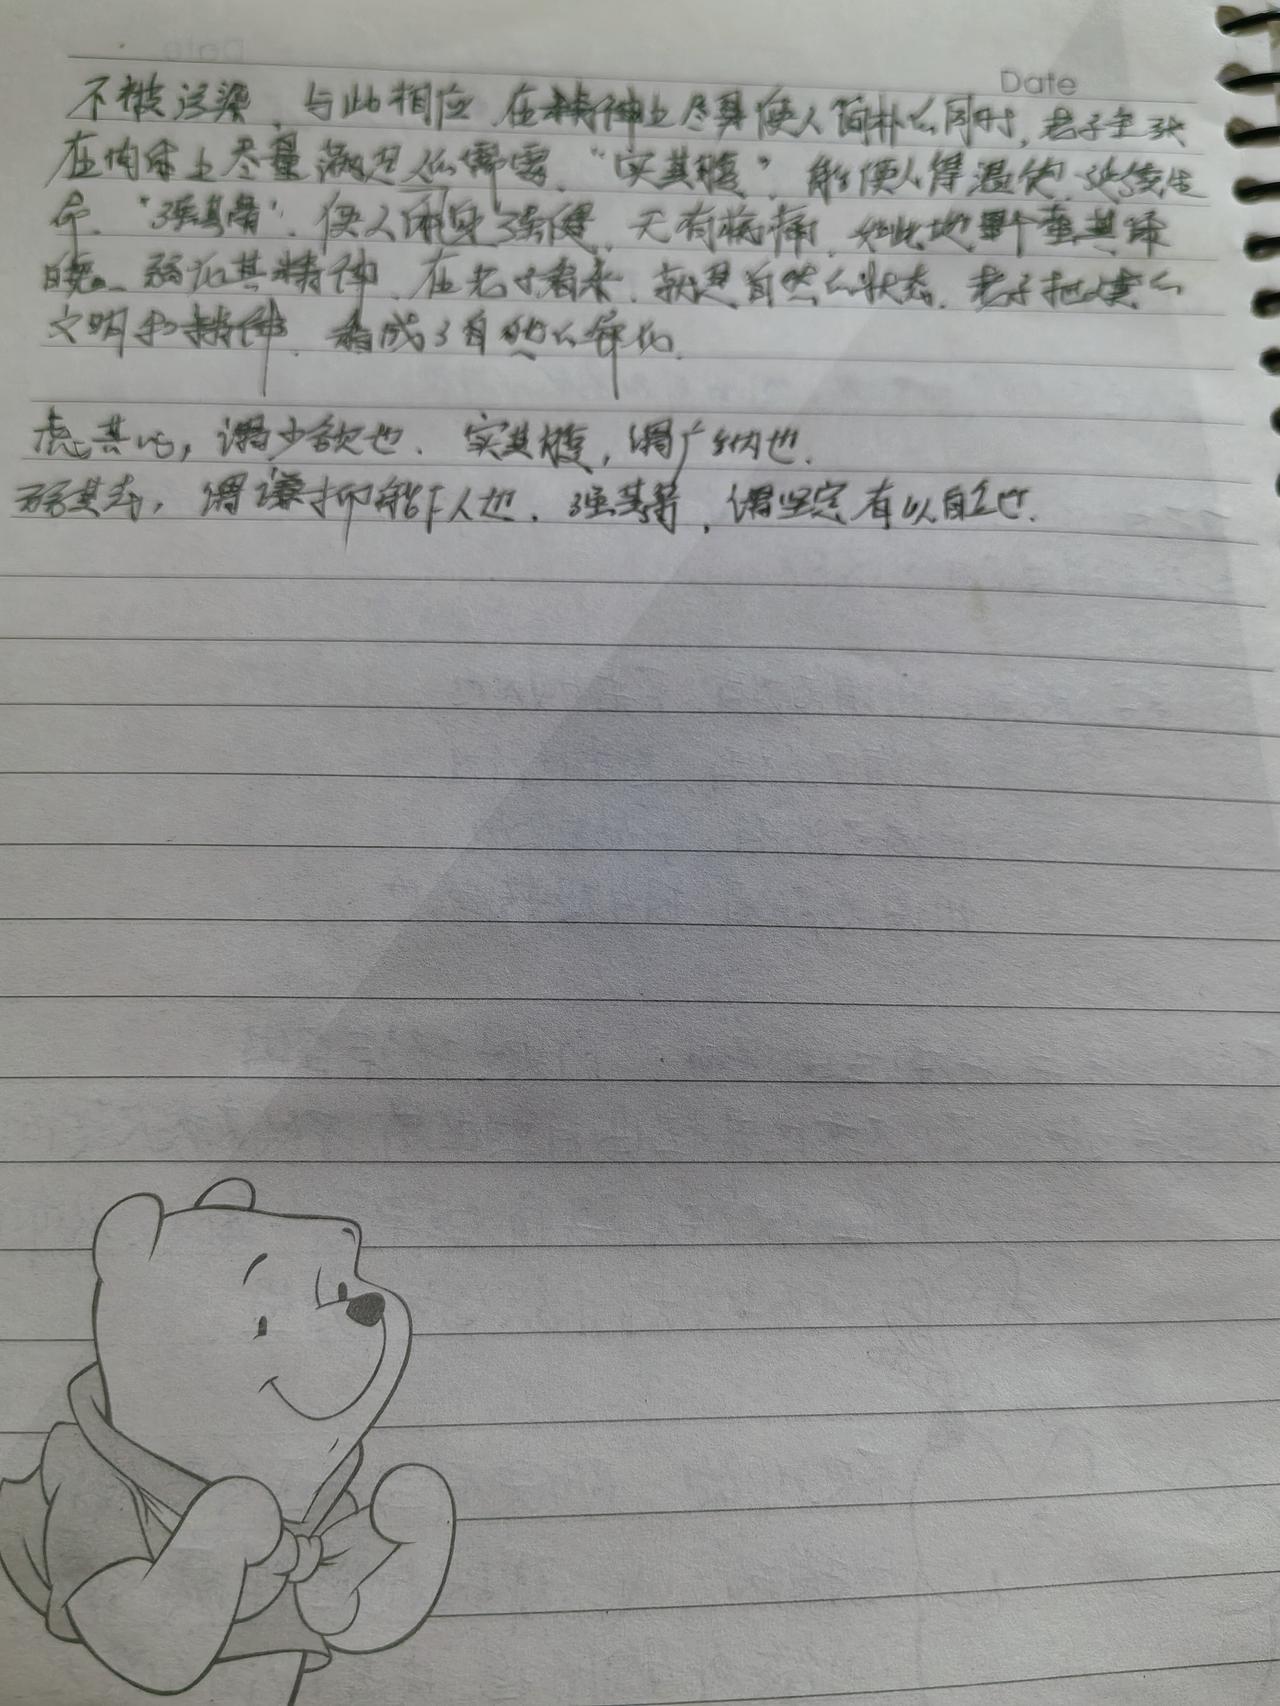 Date
不被污染,与此相应,在精神上尽量使人简朴的同时,老子主张
在肉体上尽量满足人的需要,“实其腹”,能使人得温饱,延续生
命,“强其骨”,使人肉身强健,无有病痛,如此地
弱化其精神,在老子看来,就是自然的状态,老子把
文明和精神,看成了自然的异化.
虚其心,谓少欲也.实其腹,谓广纳也.
弱其志,谓谦抑能下人也.强其骨,谓坚定有以自立也.